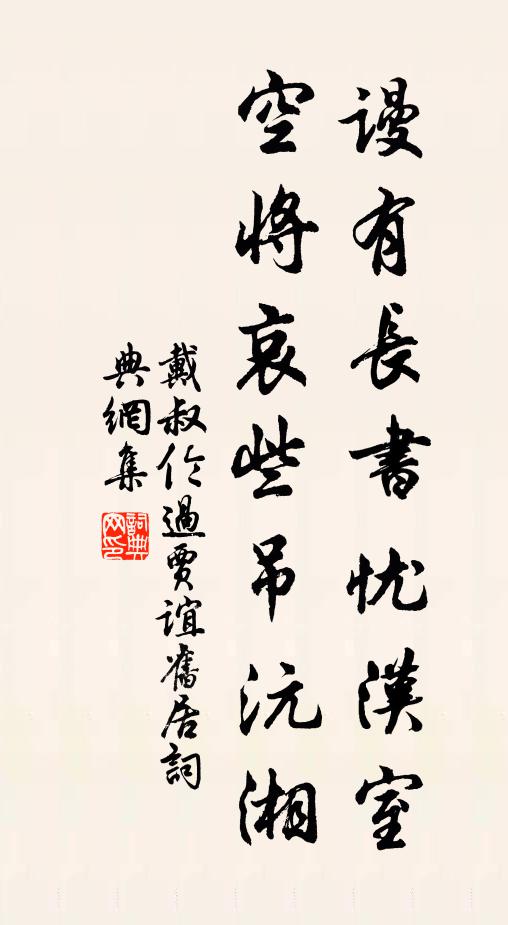 謾有長書忧漢室
空將哀些吊沅湘
戴叔伦過賈誼舊居詞
典網集
詞典
网印